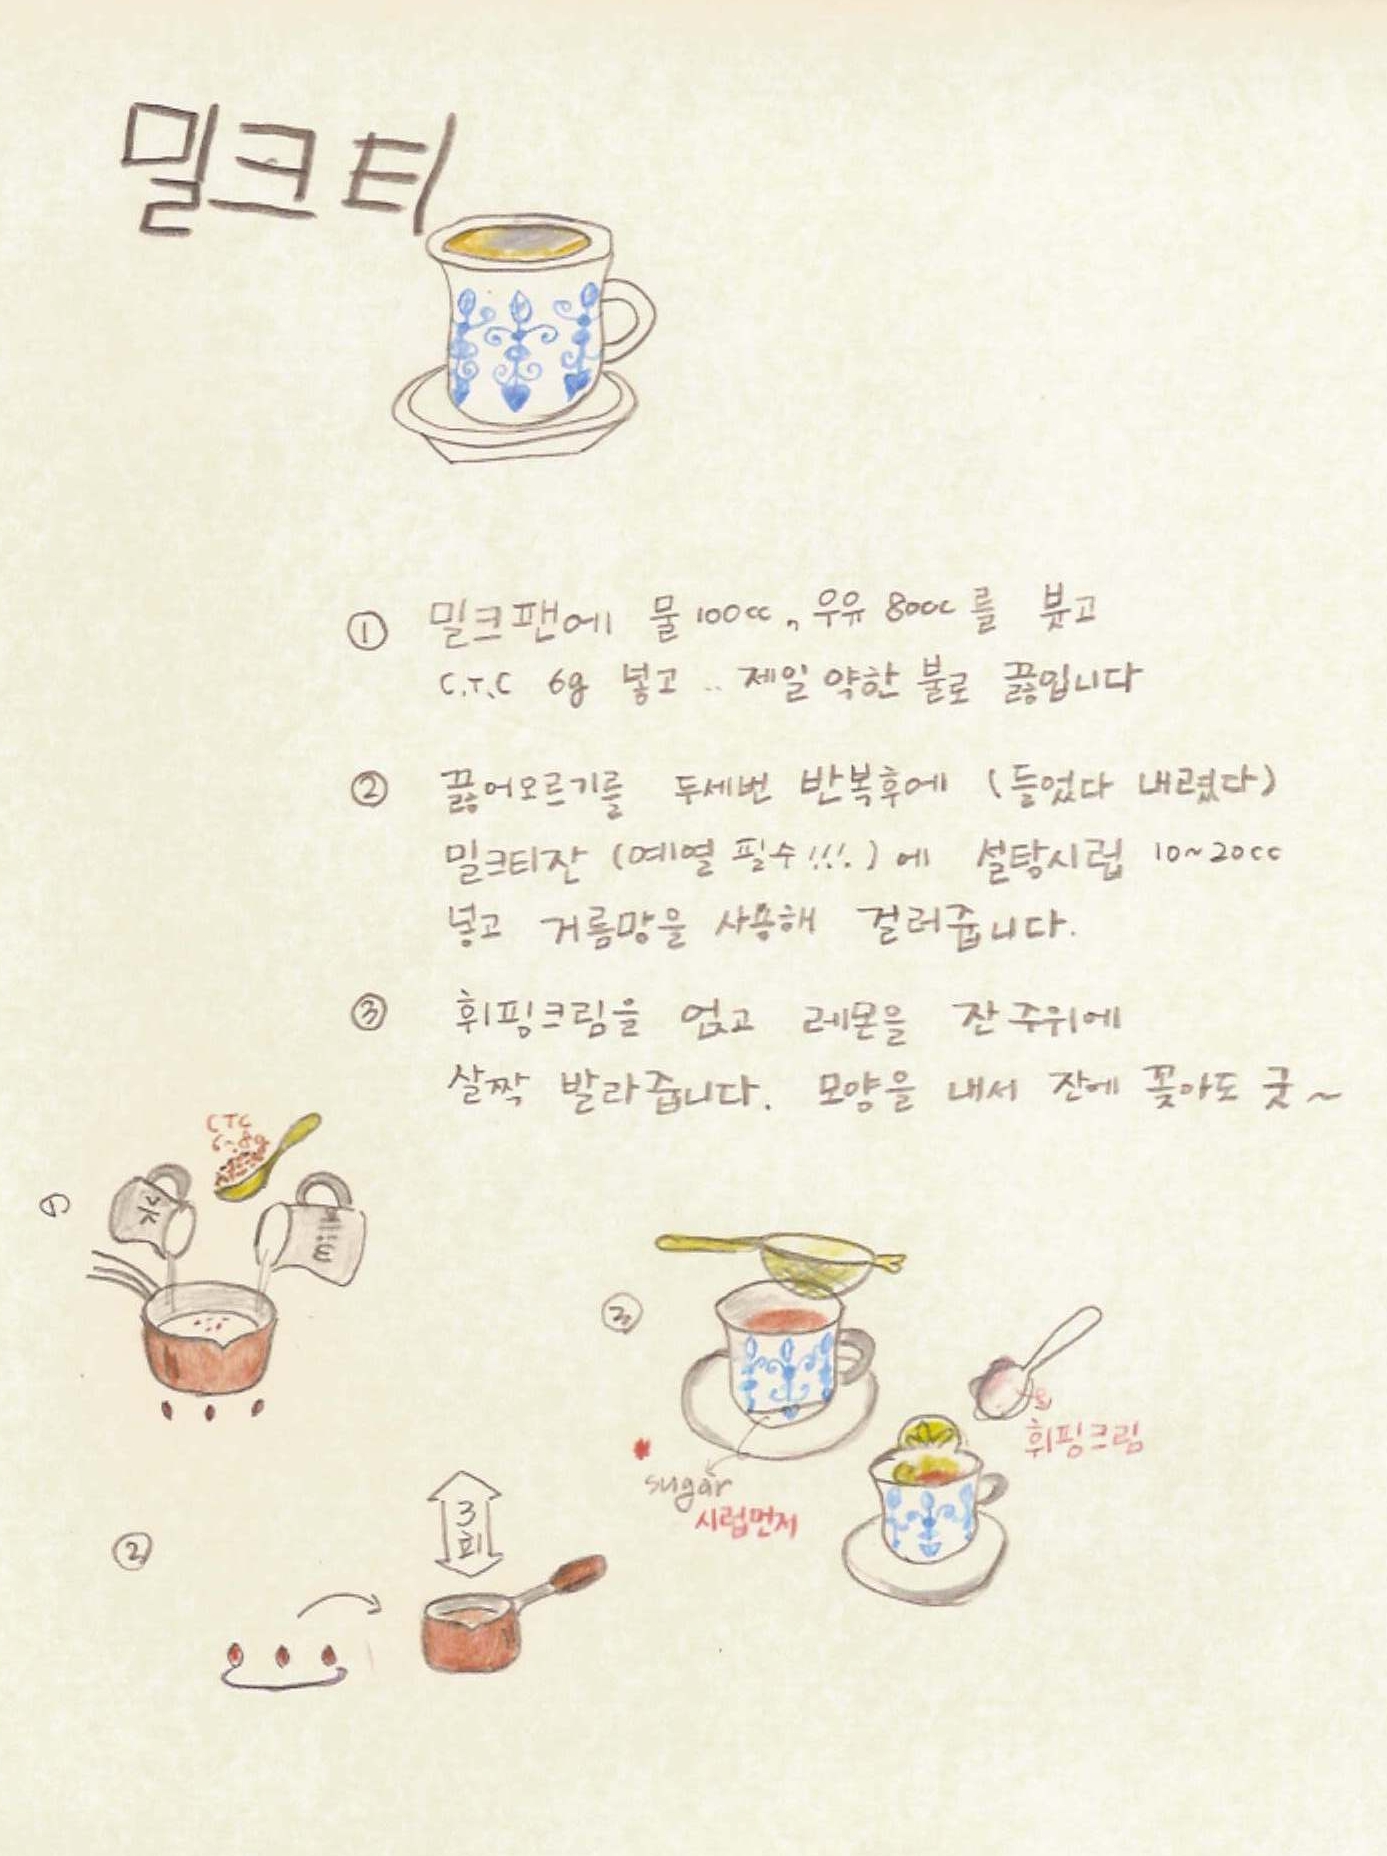 밀크티
① 밀크팬에 물 100cc, 우유 80cc를 붓고
C.T.C 6g 넣고 .. 제일 약한 불로 끓입니다
② 끓어오르기를 두세번 반복후에 (들었다 내렸다)
밀크티잔 (예열 필수!!!.) 에 설탕시럽 10~20cc
넣고 거름망을 사용해 걸러줍니다.
③ 휘핑크림을 얹고 레몬을 잔주위에
살짝 발라줍니다. 모양을 내서 잔에 꽂아도 굿~
CTC
6~8g
①
水
②
3회
3,
sugar
시럽먼저
휘핑크림